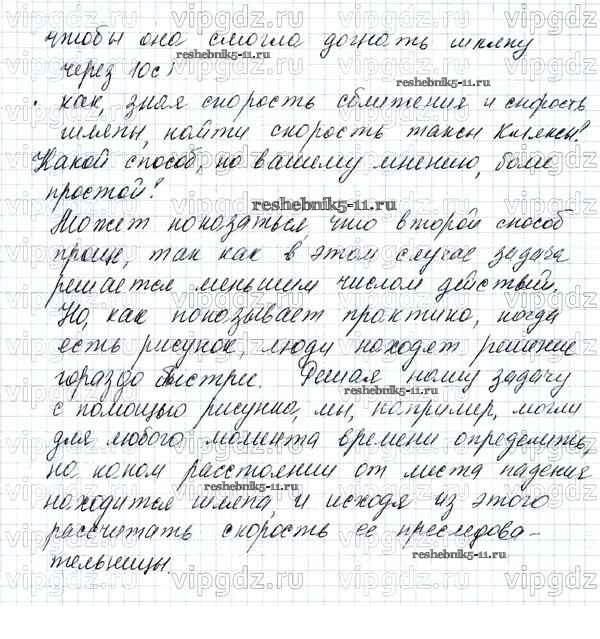 чтобы она смогла догнать шляпу
через 10с?
• как, зная скорость сближения и скорость
шляпы, найти скорость таксы Кляксы?
Какой способ, по вашему мнению, более
простой?
Может показаться, что второй способ
проще, так как в этом случае задача
решается меньшим числом действий.
Но, как показывает практика, когда
есть рисунок, люди находят решение
гораздо быстрее. Решая нашу задачу
с помощью рисунка, мы, например, могли
для любого момента времени определить,
на каком расстоянии от места падения
находится шляпа, и исходя из этого
рассчитать скорость её преследова-
тельницы.
reshebnik5-11.ru
reshebnik5-11.ru
reshebnik5-11.ru
reshebnik5-11.ru
reshebnik5-11.ru
reshebnik5-11.ru
vipgdz.ru